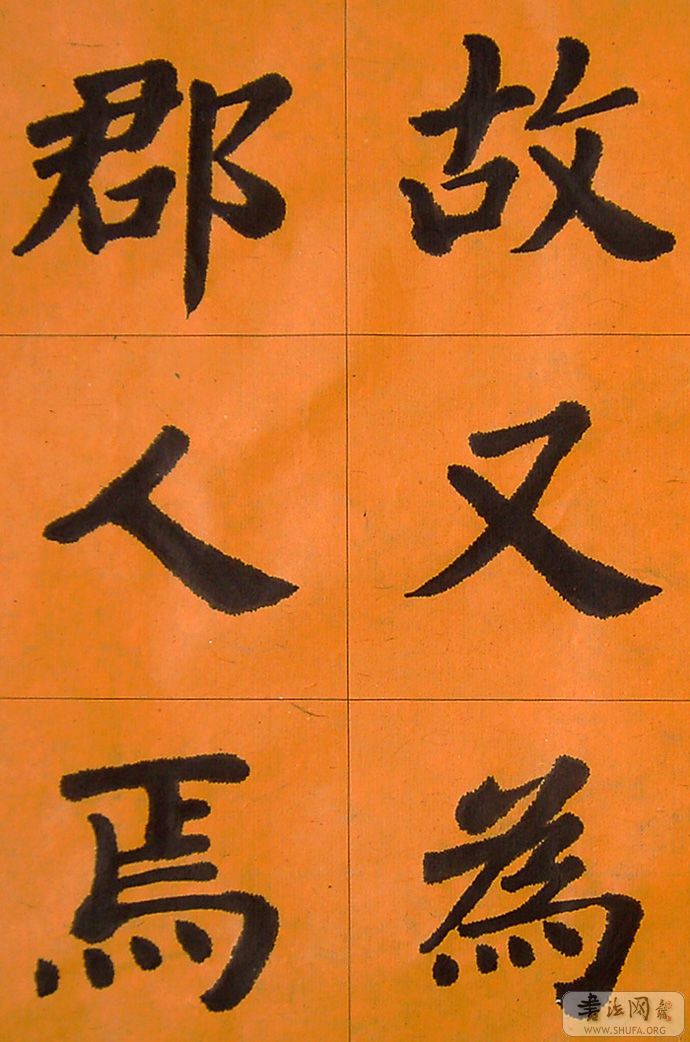 故又為
郡人焉
書法网
WWW.SHUFA.ORG